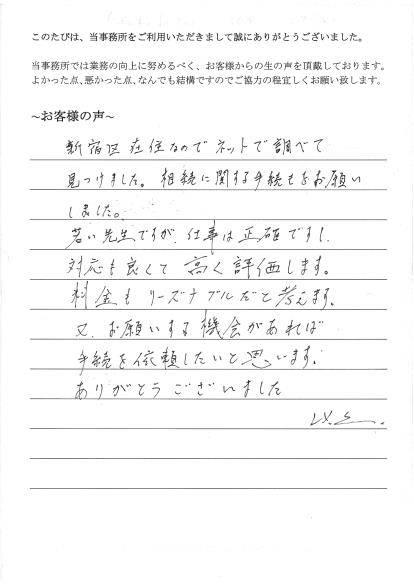 このたびは、当事務所をご利用いただきまして誠にありがとうございました。
当事務所では業務の向上に努めるべく、お客様からの生の声を頂戴しております。
よかった点、悪かった点、なんでも結構ですのでご協力の程宜しくお願い致します。
~お客様の声~
新宿区在住なのでネットで調べて
見つけました。相続に関する手続きをお願い
しました。
若い先生ですが、仕事は正確ですし、
対応も良くて高く評価します。
料金もリーズナブルだと考えます。
又、お願いする機会があれば
手続を依頼したいと思います。
ありがとうございました